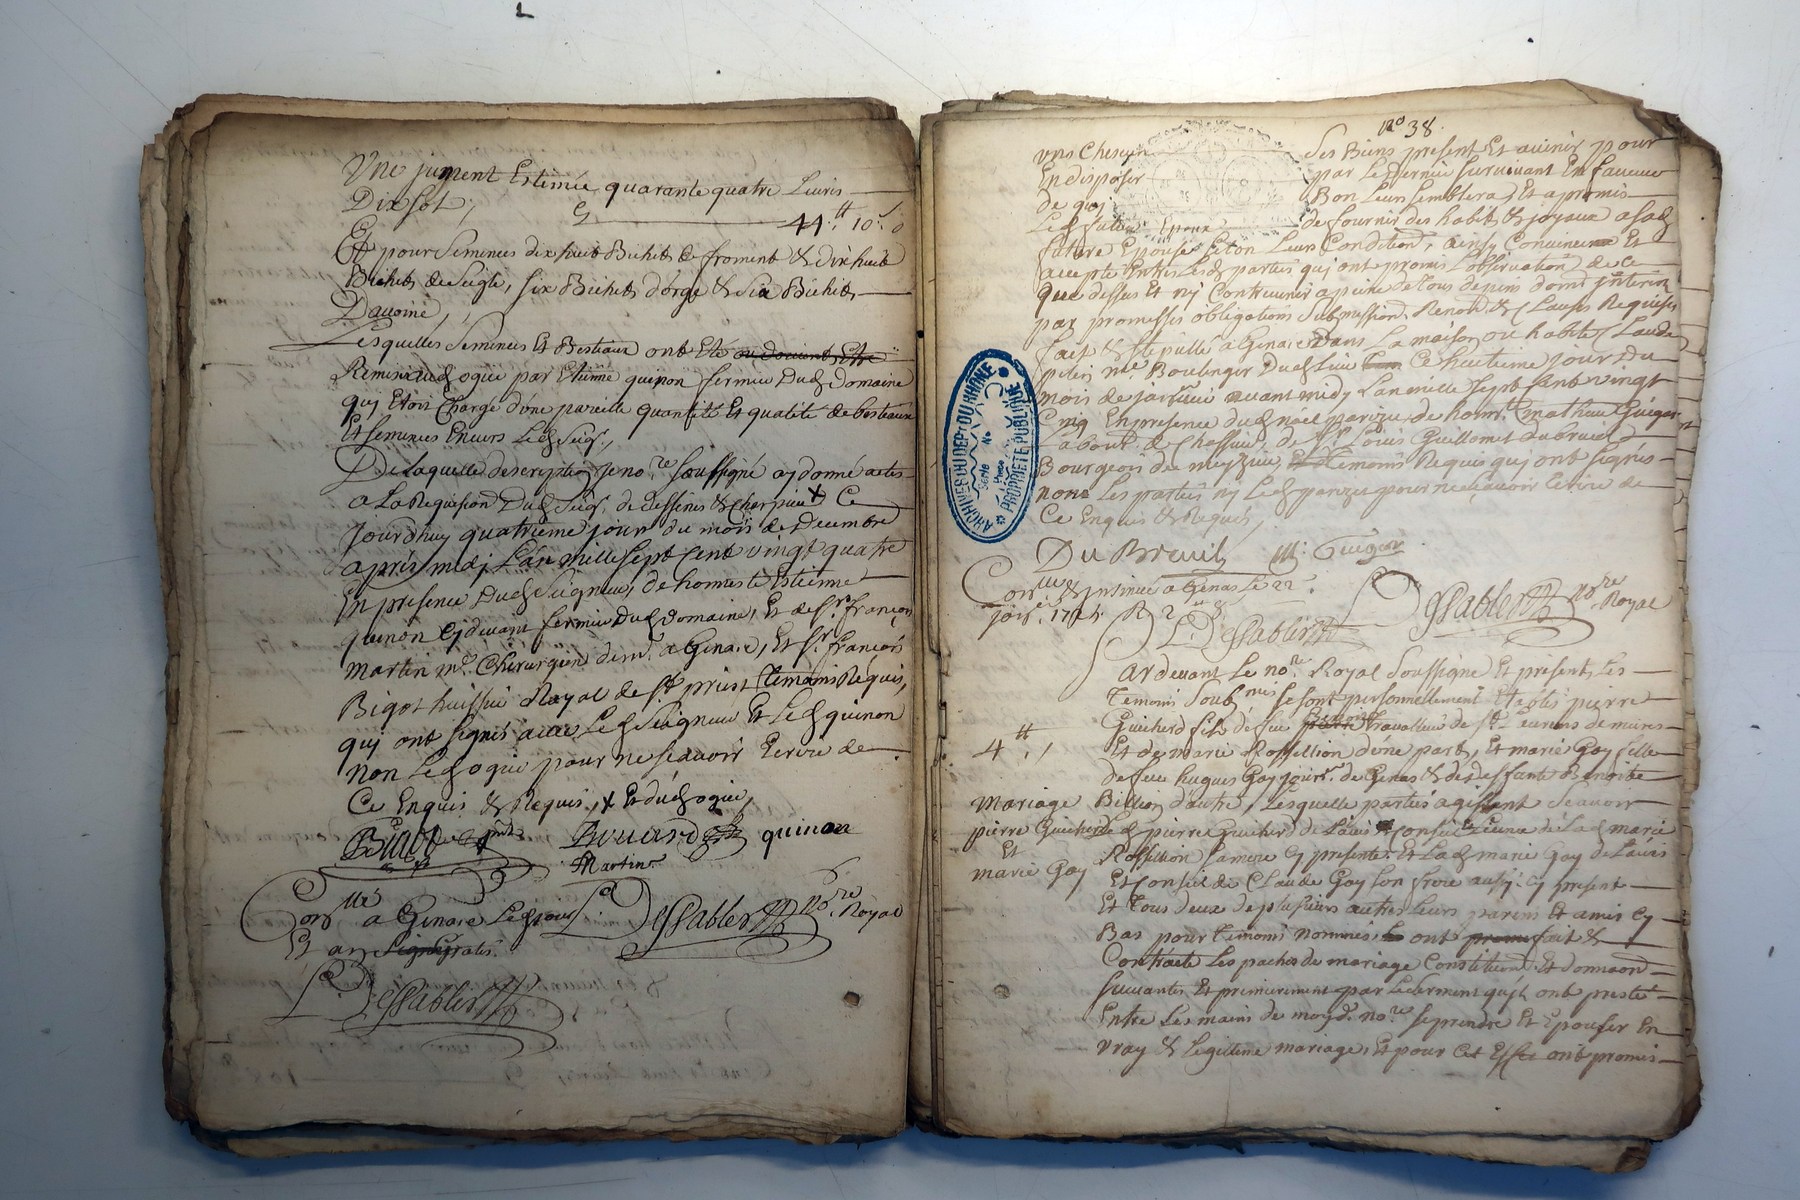 Une jument Estimée quarante quatre Livres
Dix sol, Cy 44.tt 10.s
Et pour Semences dix huit Bichets de froment & dix huit
Bichets de Seigle, six Bichets d'orge & Six Bichets
D'avoine,
Lesquelles Semences Et Bestiaux ont Eté ou doivent Etre
par Etienne quinon fermier Dud domaine
quj Etoit Chargé d'une pareille quantité Et qualité de bestiaux
Et semences Envers Led Seigr,
De Laquelle description Je nore Soussigné aj donné actes
a La Requision Dud Seigr de & + Ce
Jourdhuy quatrieme jour du mois de Decembre
après midj L'an mille sept Cent vingt quatre
En presence Dud Seigneur, de honneste Estienne
quinon Cydevant fermier Dud Domaine, Et de Sr françois
Martin me Chirurgien demt a Genare, Et Sr françois
Bigot huissier Royal de St priest Temoins Réquis,
quj ont signés avec Led Seigneur Et Led quinon
non Led ogier pour ne Scavoir Ecrire de
Ce Enquis & Requis, + Et dud ogier,
Bigot quinon
Martin
Conllé a Genare Led jour Dessablet Nore Royal
Et an gratis.
Dessablet
No 38
uns Chescun Ses Biens présent Et avenir pour
En disposer par Le Dernier Survivant En faveur
de quj Bon Leur Semblera, Et a promis
Led futur Epoux de fournir des habits & joyaux a sad
future Epouse Selon Leurs Condition, ainsy Convenu Et
accepté Entre Lesd parties quj ont promis L'observation de Ce
que dessus Et nj Contrevenir a peine de tous depens domt jnterets
par promesses obligations Submissions Renonons & Clauses Requises
fait & stipullé a Genare Dans La maison ou habite Claude
me Boulenger Dud Lieu Ce huitieme jour Du
mois de janvier avant midy L'an mille Sept Cent vingt
Cinq En presence dud de honte mathieu Guigar
Labour de Chassieu, de Sr Louis Guillomet dubreuil
Bourgeois de meyzieu, Temoins Requis quj ont signés
non Les parties nj Led pour ne scavoir Ecrire de
Ce Enquis & Requis,
Du Breuil M. Guigar
Conllé & jnsinué a Genas Le 22
janer 1725 R 2 Dessablet Nore Royal
Dessablet
ARCHIVES DU DEPT DU RHONE
PROPRIETE PUBLIQUE
Pardevant Le nore Royal Soussigné Et présent, Les
Temoins Soubnmés Se sont personnellement Etablis pierre
Guicherd fils de feu travailleur de St de mures
4.tt Et de marie Rossillion d'une part, Et marie Gay fille
de feu hugues Gay jourr de Genas & de deffunte Benoite
Mariage
Billion d'autre, Lesquelle parties agissent Scavoir
pierre Guicherd
Led pierre Guicherd de L'avis & de Lad marie
Et
Rossillion Sa mere Cy presente, Et Lad marie Gay de L'avis
marie Gay
Et Conseil de Claude Gay Son frere aussj Cy present
Et Tous deux de plusieurs autres Leurs parens Et amis Cy
Bas pour Temoins nommés, ont fait &
Contracté Les paches de mariage Constitution Et donnaon
Suivantes Et premierement par Leserment quils ont presté
Entre Les mains de moyd. nore Se prendre Et Epouser En
vray & Legitime mariage, Et pour Cet Effet ont promis